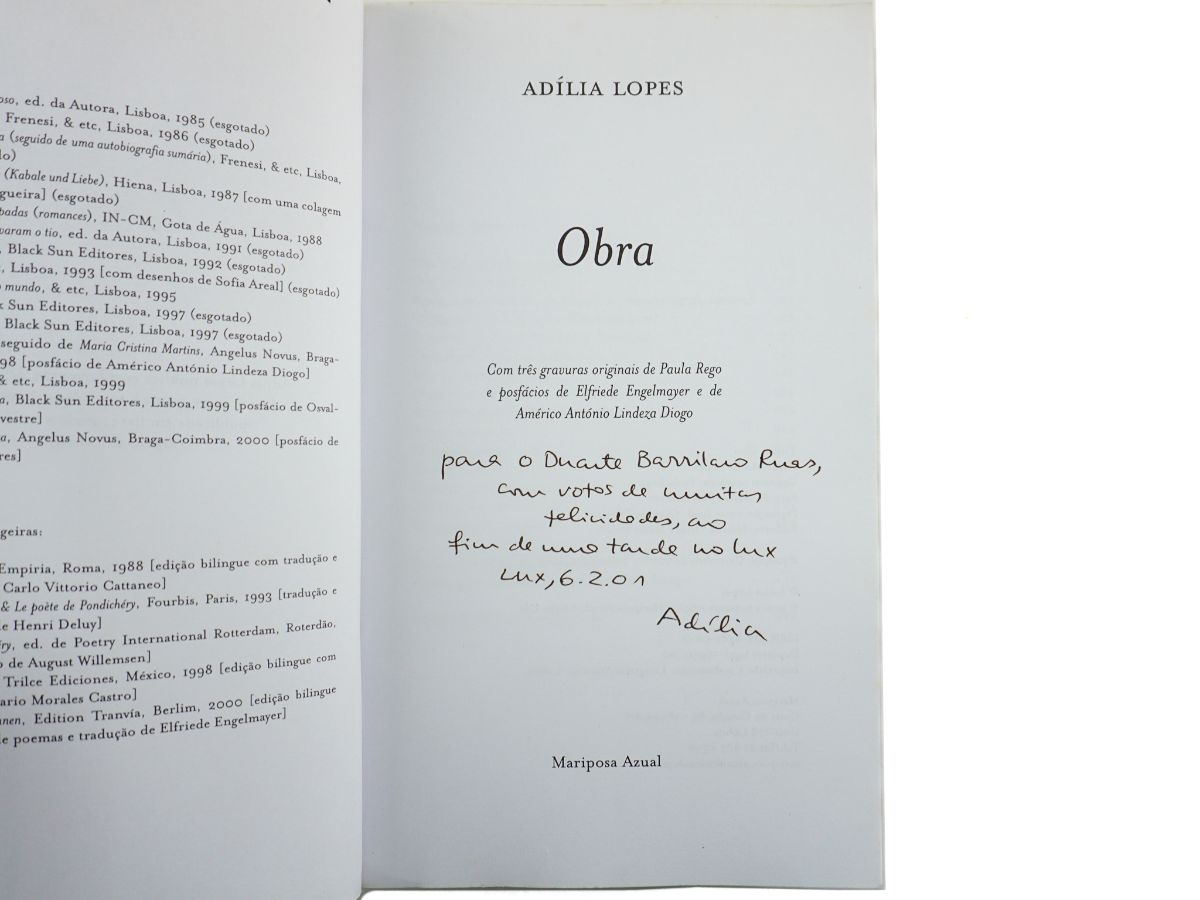 oso, ed. da Autora, Lisboa, 1985 (esgotado)
Frenesi, & etc, Lisboa, 1986 (esgotado)
a (seguido de uma autobiografia sumária), Frenesi, & etc, Lisboa,
lo)
(Kabale und Liebe), Hiena, Lisboa, 1987 [com uma colagem
gueira] (esgotado)
badas (romances), IN-CM, Gota de Água, Lisboa, 1988
varam o tio, ed. da Autora, Lisboa, 1991 (esgotado)
, Black Sun Editores, Lisboa, 1992 (esgotado)
, Lisboa, 1993 [com desenhos de Sofia Areal] (esgotado)
o mundo, & etc, Lisboa, 1995
k Sun Editores, Lisboa, 1997 (esgotado)
Black Sun Editores, Lisboa, 1997 (esgotado)
seguido de Maria Cristina Martins, Angelus Novus, Braga-
98 [posfácio de Américo António Lindeza Diogo]
& etc, Lisboa, 1999
a, Black Sun Editores, Lisboa, 1999 [posfácio de Osval-
vestre]
a, Angelus Novus, Braga-Coimbra, 2000 [posfácio de
res]
geiras:
Empiria, Roma, 1988 [edição bilingue com tradução e
Carlo Vittorio Cattaneo]
& Le poète de Pondichéry, Fourbis, Paris, 1993 [tradução e
e Henri Deluy]
éry, ed. de Poetry International Rotterdam, Roterdão,
o de August Willemsen]
Trilce Ediciones, México, 1998 [edição bilingue com
ario Morales Castro]
nen, Edition Tranvía, Berlim, 2000 [edição bilingue
e poemas e tradução de Elfriede Engelmayer]
ADÍLIA LOPES
Obra
Com três gravuras originais de Paula Rego
e posfácios de Elfriede Engelmayer e de
Américo António Lindeza Diogo
para o Duarte Barrilaro Ruas,
com votos de muitas
felicidades, ao
fim de uma tarde no Lux
Lux, 6.2.01
Adília
Mariposa Azual